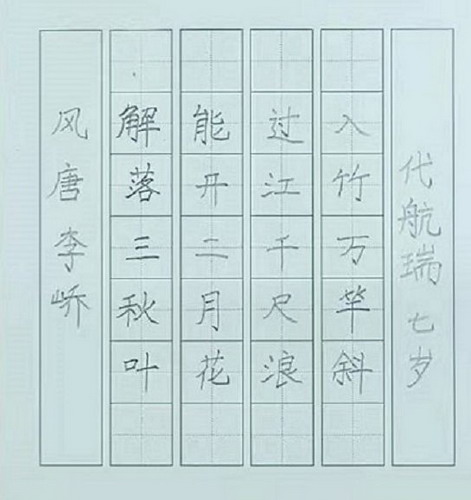 风唐李峤
解落三秋叶
能开二月花
过江千尺浪
入竹万竿斜
代航瑞七岁